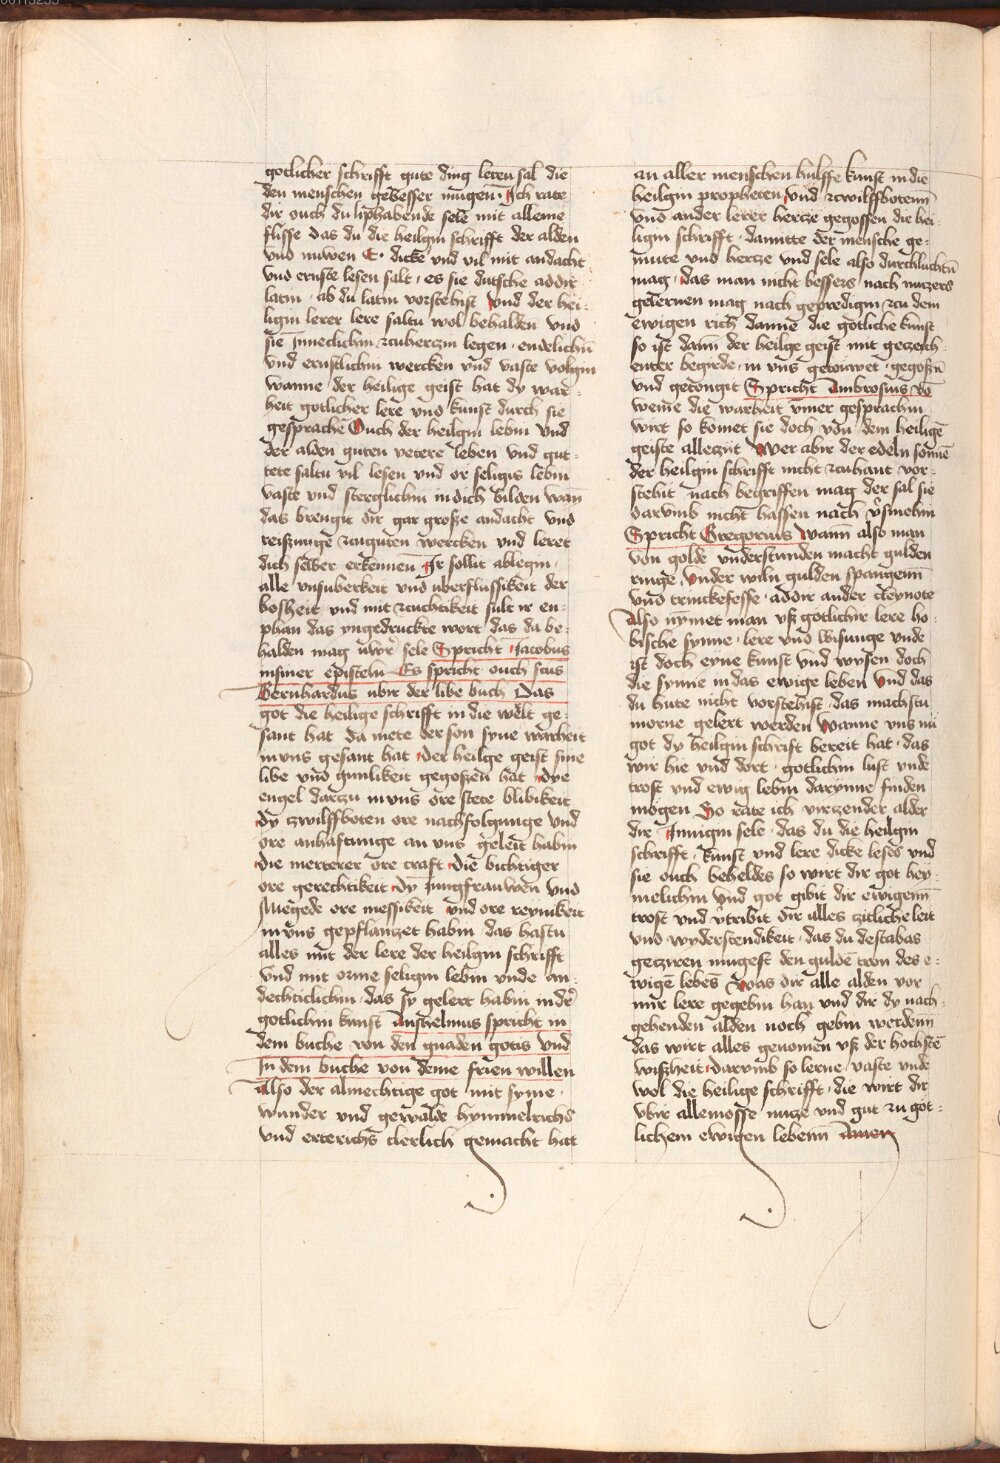 gotlicher schrifft gute ding leren sal die
den menschen gebesser mugen · Ich rate
dir ouch du liphabende sele mit alleme
flisse das du die heilgin schrifft der alden
vnd nuwen E · dicke vnd vil mit andacht
vnd ernste lesen salt · es sie dutsche addir
latin · ab du latin vorstehist vnd der hei-
ligin lerer lere saltu wol behalden vnd
sie inneclichin zcuherczin legen · endelichin
vnd ernstlichin wercken vnd vaste volgin
wanne der heilige geist hat dy war
heit gotlicher lere vnd kunst durch sie
gesprache Ouch der heilgin lebin vnd
der alden guten vetere leben vnd gut-
tete saltu vil lesen vnd or seligis lebin
vaste vnd sterglichin in dich bilden wan
das brengit dir gar große andacht vnd
reißunge zcuguten wercken vnd leret
dich selber erkennen Ir sollit ablegin
alle vnsuberkeit vnd vberflussikeit der
bosheit vnd mit zcuchtikeit sult ir en-
phan das yngedruckte wort das da be-
halden mag uwer sele Spricht Jacobus
in siner episteln Es spricht ouch scus
Bernhardus ubir der libe buch Das
got die heilige schrifft in die welt ge-
sant hat da mete der son syne warheit
in vns gesant hat der heilge geist sine
libe vnd gunlikeit gegoßen hat dye
engel darzcu in vns ore stete blibikeit
dy zwilffboten ore nachfolgunge vnd
ore anhaftunge an vns geleit habin
die merterer ore craft die bichtiger
ore gerechtikeit dy Jungfrauwen vnd
Meegede ore messikeit vnd ore reynikeit
in vns gepflanzet habin das hastu
alles mit der lere der heilgin schrifft
vnd mit orme seligin lebin vnde an-
dechticlichin das sy gelert habin in der
gotlichin kunst Anshelmus spricht in
dem buche von den gnaden gotis vnd
In dem buche von deme frien willen
Also der almechtige got mit syme
wunder vnd gewalde hymmelrichs
vnd erterichs clerlich gemacht hat
an aller menschen hulffe kunst in die
heilgin propheten vnd zcwilffbotenn
vnd ander lerer hercze gegossen die hei-
ligin schrifft · damitte der mensche ge-
mute vnd hercze vnd sele also durchluchtin
mag · das man nicht bessers nach nuczers
gelernen mag nach gepredigin zcu dem
ewigen rich danne die gotliche kunst
so ist dann der heilge geist mit
begirde in vns · gegoßin
vnd getongit Spricht Ambrosius vō
weme die warheit vmer gesprachin
wirt so komet sie doch von dem heiligē
geiste alleczijt Wer abir der edeln sonnē
der heilgin schrifft nicht zcuhant vor-
stehit nach begriffen mag der sal sie
darvmb nicht hassen nach v'smehin
Spricht Gregorius Wann also man
von golde vnderstunden macht gulden
ringe vnder wiln gulden spangenn
vnd trinckefesse · addir ander cleynote
Also nymet man vß gotlichir lere ho-
bische synne · lere vnd wisunge vnde
ist doch eyne kunst vnd wysen doch
die synne in das ewige leben vnd das
du hute nicht vorstehist das machstu
morne gelert werden wanne vns nu
got dy heilgin schrift bereit hat · das
wir hie vnd dort · gotlichin lust vnde
trost vnd ewig lebin darynne finden
mogen So rate ich alder
dir Innigin sele · das du die heilgin
schrifft · kunst vnd lere dicke leses vnd
sie ouch beheldes so wirt dir got hey-
melichin vnd got gibit dir ewigenn
trost vnd v'tribit dir alles zitliche leit
vnd wyderstendikeit · das du destabas
geczyren mugest den guldē tron des e-
wigē lebēs Was dir alle alden vor
mir lere gegebin han vnd dir dy nach-
gehenden alden noch gebin werdenn
das wirt alles genomen vß der hochstē
wißheit darvmb so lerne vaste vnde
wol die heilige schrifft · die wirt dir
vbir allemosse nucze vnd gut zu got-
lichem ewigen lebenn Amen